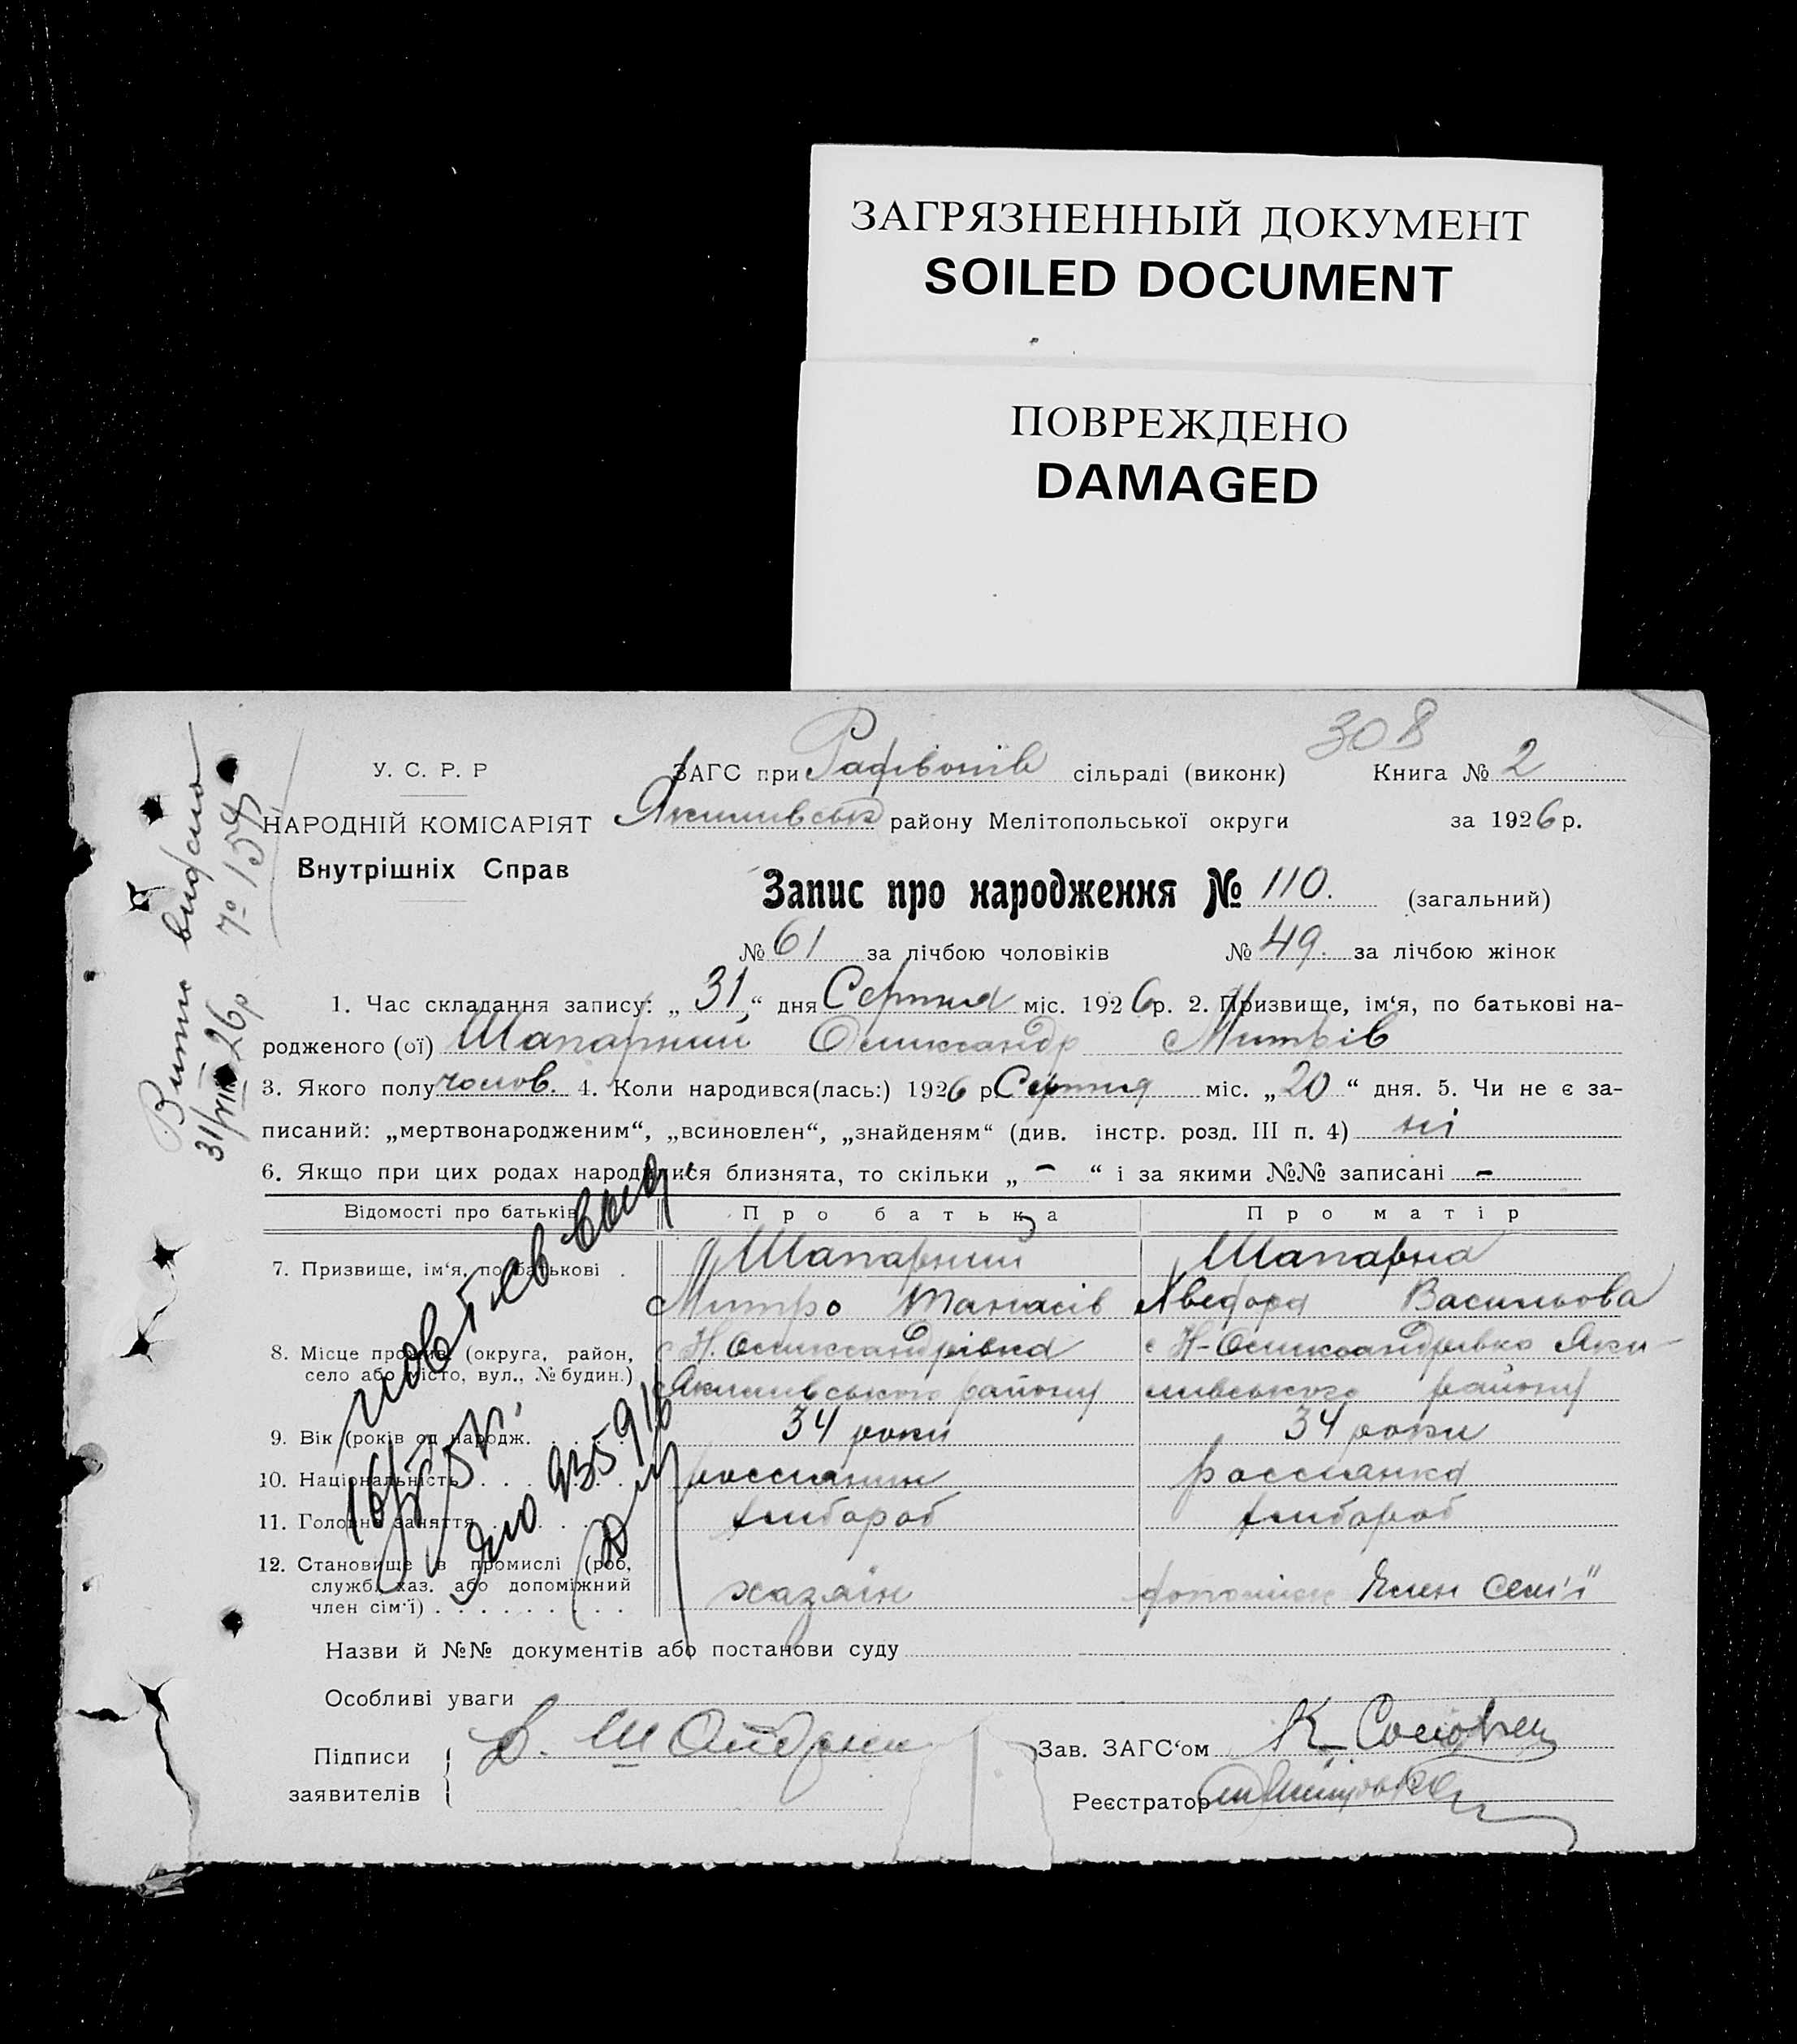 ЗАГРЯЗНЕННЫЙ ДОКУМЕНТ
SOILED DOCUMENT
ПОВРЕЖДЕНО
DAMAGED
308
У. С. Р. Р
НАРОДНІЙ КОМІСАРІЯТ
Внутрішніх Справ
ЗАГС при сільраді (виконк) Книга № 2
району Мелітопольської округи за 1926 р.
Запис про народження № 110. (загальний)
№ 61 за лічбою чоловіків № 49. за лічбою жінок
1. Час складання запису: „ 31 “ дня Серпня міс. 1926 р. 2. Призвище, ім‘я, по батькові на-
родженого (ої) Шапарний Оликсандр Митрів
3. Якого полу чолов. 4. Коли народився(лась:) 1926 р. Серпня міс. „ 20 “ дня. 5. Чи не є за-
писаний: „мертвонародженим“, „всиновлен“, „знайденям“ (див. інстр. розд. III п. 4) ні
6. Якщо при цих родах народилися близнята, то скільки „ – “ і за якими №№ записані –
Відомості про батьків Про батька Про матір
7. Призвище, ім‘я, по батькові . Шапарний Шапарна
Митро Танасів Хведора Васильова
8. Місце прожив. (округа, район, с Н. Оликсандрівка с Н-Оликсандрівка Яки-
село або місто, вул., № будин.) Якимівського району мивського району
9. Вік (років од народж. . . . . . 34 роки 34 роки
10. Національність . . . . . . . россиянин россиянка
11. Головне заняття . . . . . . хлибороб хлибороб
12. Становище в промислі (роб,
служб. хаз. або допоміжний хазяїн допоміж Член семʼї
член сім‘ї) . . . . . . . . . .
Назви й №№ документів або постанови суду
Особливі уваги
Підписи
заявителів
Зав. ЗАГС‘ом
Реєстратор
Витяг видано
31/VIII 26р
№ 154